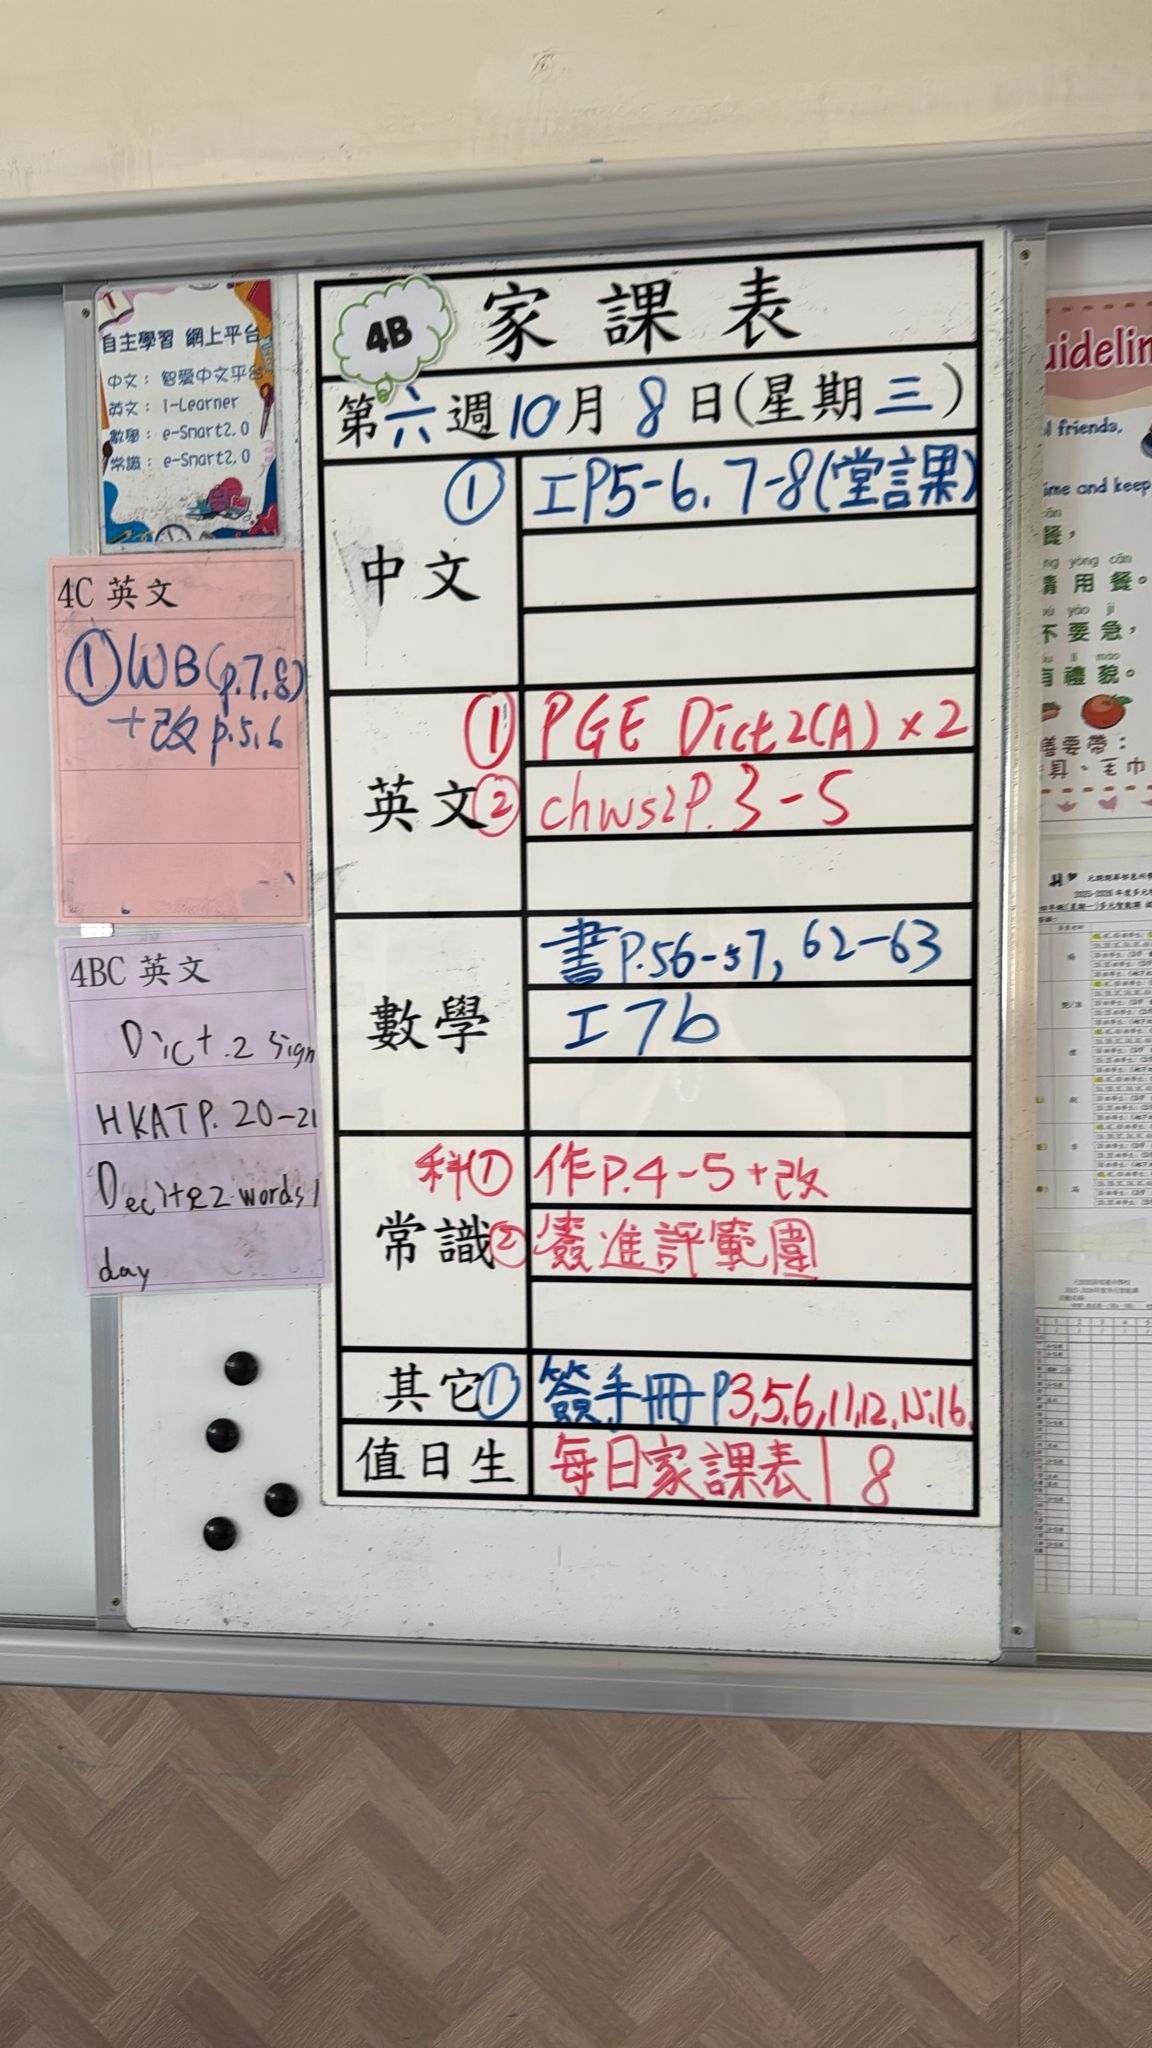 家課表
4B
第六週10月8日(星期三)
中文
① 工P5-6.7-8(堂課)
英文
① PGE Dict2(A)×2
② chws2P.3-5
數學
書P.56-57, 62-63
工7b
常識
科① 作P.4-5+改
② 簽進評範圍
其它
① 簽手冊P3,5,6,11,12,15,16.
值日生
每日家課表 | 8
自主學習 網上平台
中文：智愛中文平台
英文：i-Learner
數學：e-Smart2.0
常識：e-Smart2.0
4C 英文
①WB(p.7.8)
+改 p.5,6
4BC 英文
Dict.2 sign
HKAT P. 20-21
Decite2 words/
day
uidelin
friends,
ime and keep
餐，
yòng cān
請用餐。
yào jí
不要急，
lǐ mào
有禮貌。
膳要帶：
具、毛巾